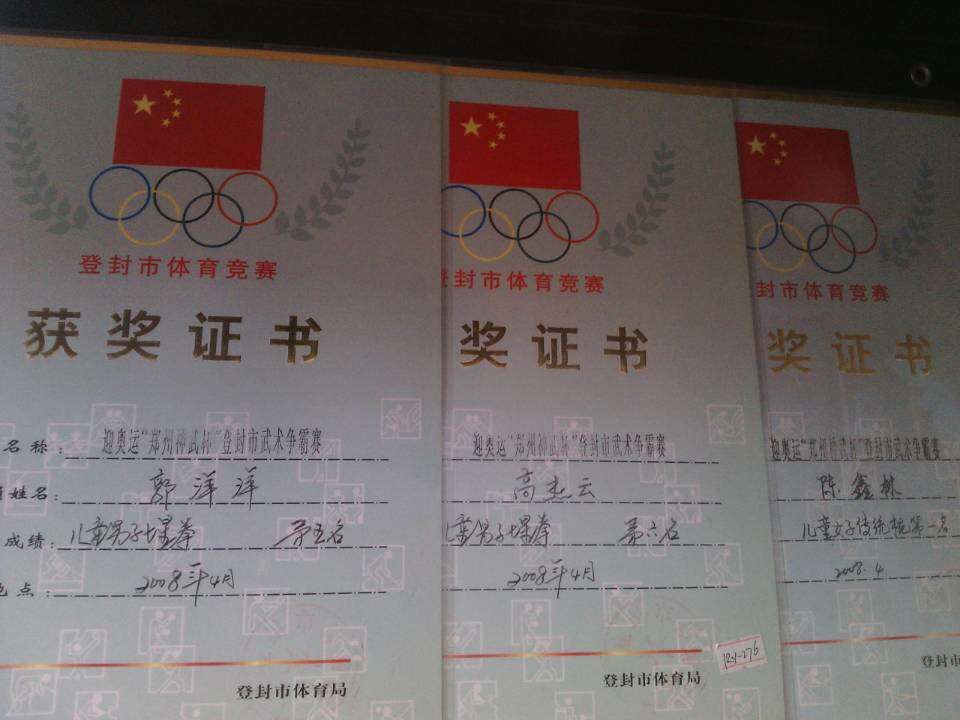 登封市体育竞赛
获奖证书
名称：迎奥运“郑州神武杯”登封市武术争霸赛
姓名：郭洋洋
成绩：儿童男子 拳 第五名
点：2008年4月
登封市体育局
封市体育竞赛
奖证书
迎奥运“郑州神武杯”登封市武术争霸赛
高杰云
儿童男子 拳 第六名
2008年4月
登封市体育局
封市体育竞赛
奖证书
迎奥运“郑州神武杯”登封市武术争霸赛
陈鑫林
儿童女子传统棍第一名
2008.4
登封